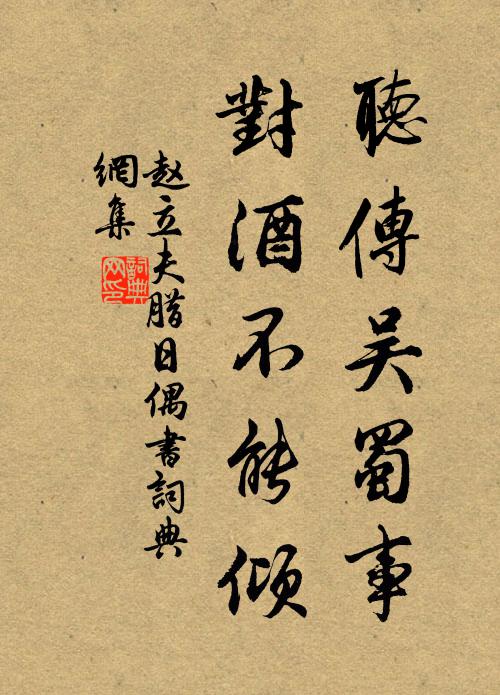 聽傳吳蜀事
對酒不能傾
赵立夫腊日偶書詞典
網集
詞典
网印